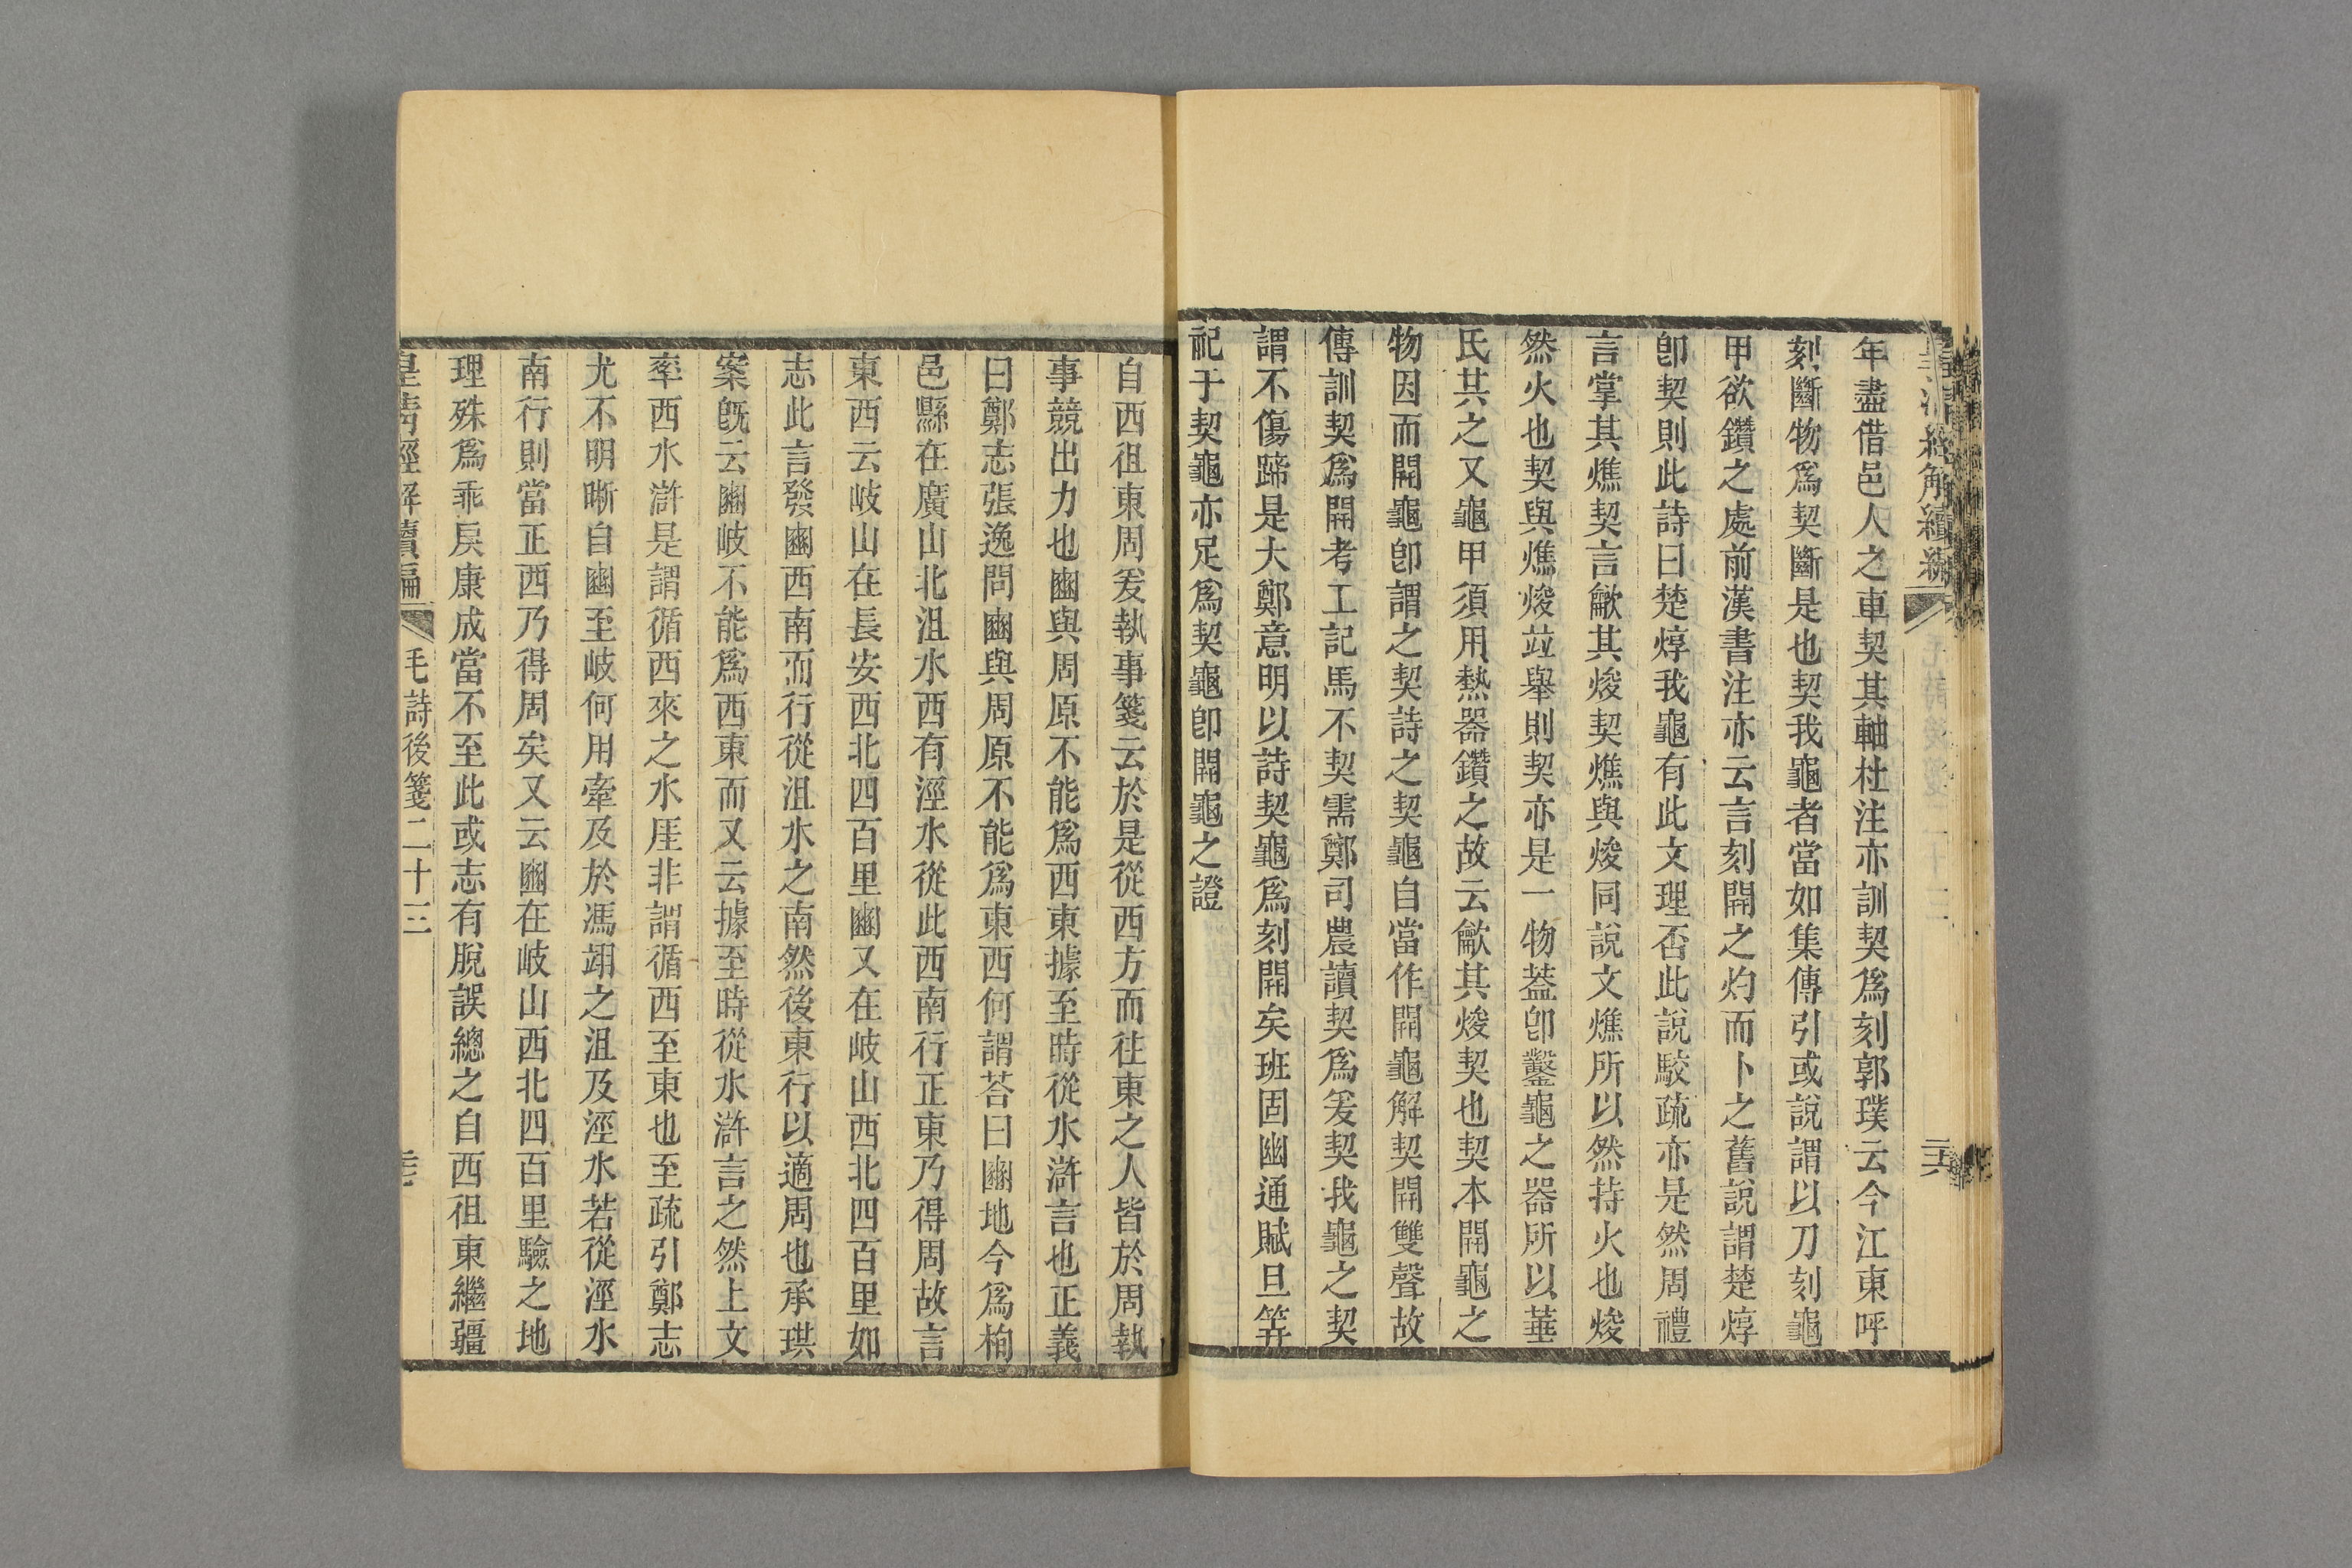 皇清經解續編
年盡借邑人之車契其軸杜注亦訓契爲刻郭璞云今江東呼
刻斷物爲契斷是也契我龜者當如集傳引或說謂以刀刻龜
甲欲鑽之處前漢書注亦云言刻開之灼而卜之舊說謂楚焞
卽契則此詩曰楚焞我龜有此文理否此說駮疏亦是然周禮
言掌其燋契言龡其焌契燋與焌同說文燋所以然持火也焌
然火也契與燋焌竝舉則契亦是一物葢卽鑿龜之器所以菙
氏共之又龜甲須用熱器鑽之故云龡其焌契也契本開龜之
物因而開龜卽謂之契詩之契龜自當作開龜解契開雙聲故
傳訓契爲開考工記馬不契需鄭司農讀契爲爰契我龜之契
謂不傷蹄是大鄭意明以詩契龜爲刻開矣班固幽通賦旦筭
祀于契龜亦足爲契龜卽開龜之證
自西徂東周爰執事箋云於是從西方而往東之人皆於周執
事競出力也豳與周原不能爲西東據至時從水滸言也正義
曰鄭志張逸問豳與周原不能爲東西何謂荅曰豳地今爲栒
邑縣在廣山北沮水西有涇水從此西南行正東乃得周故言
東西云岐山在長安西北四百里豳又在岐山西北四百里如
志此言發豳西南而行從沮水之南然後東行以適周也承珙
案旣云豳岐不能爲西東而又云據至時從水滸言之然上文
率西水滸是謂循西來之水厓非謂循西至東也至疏引鄭志
尤不明晰自豳至岐何用牽及於馮翊之沮及涇水若從涇水
南行則當正西乃得周矣又云豳在岐山西北四百里驗之地
理殊爲乖戾康成當不至此或志有脫誤總之自西徂東繼疆
皇清經解續編
毛詩後箋二十三